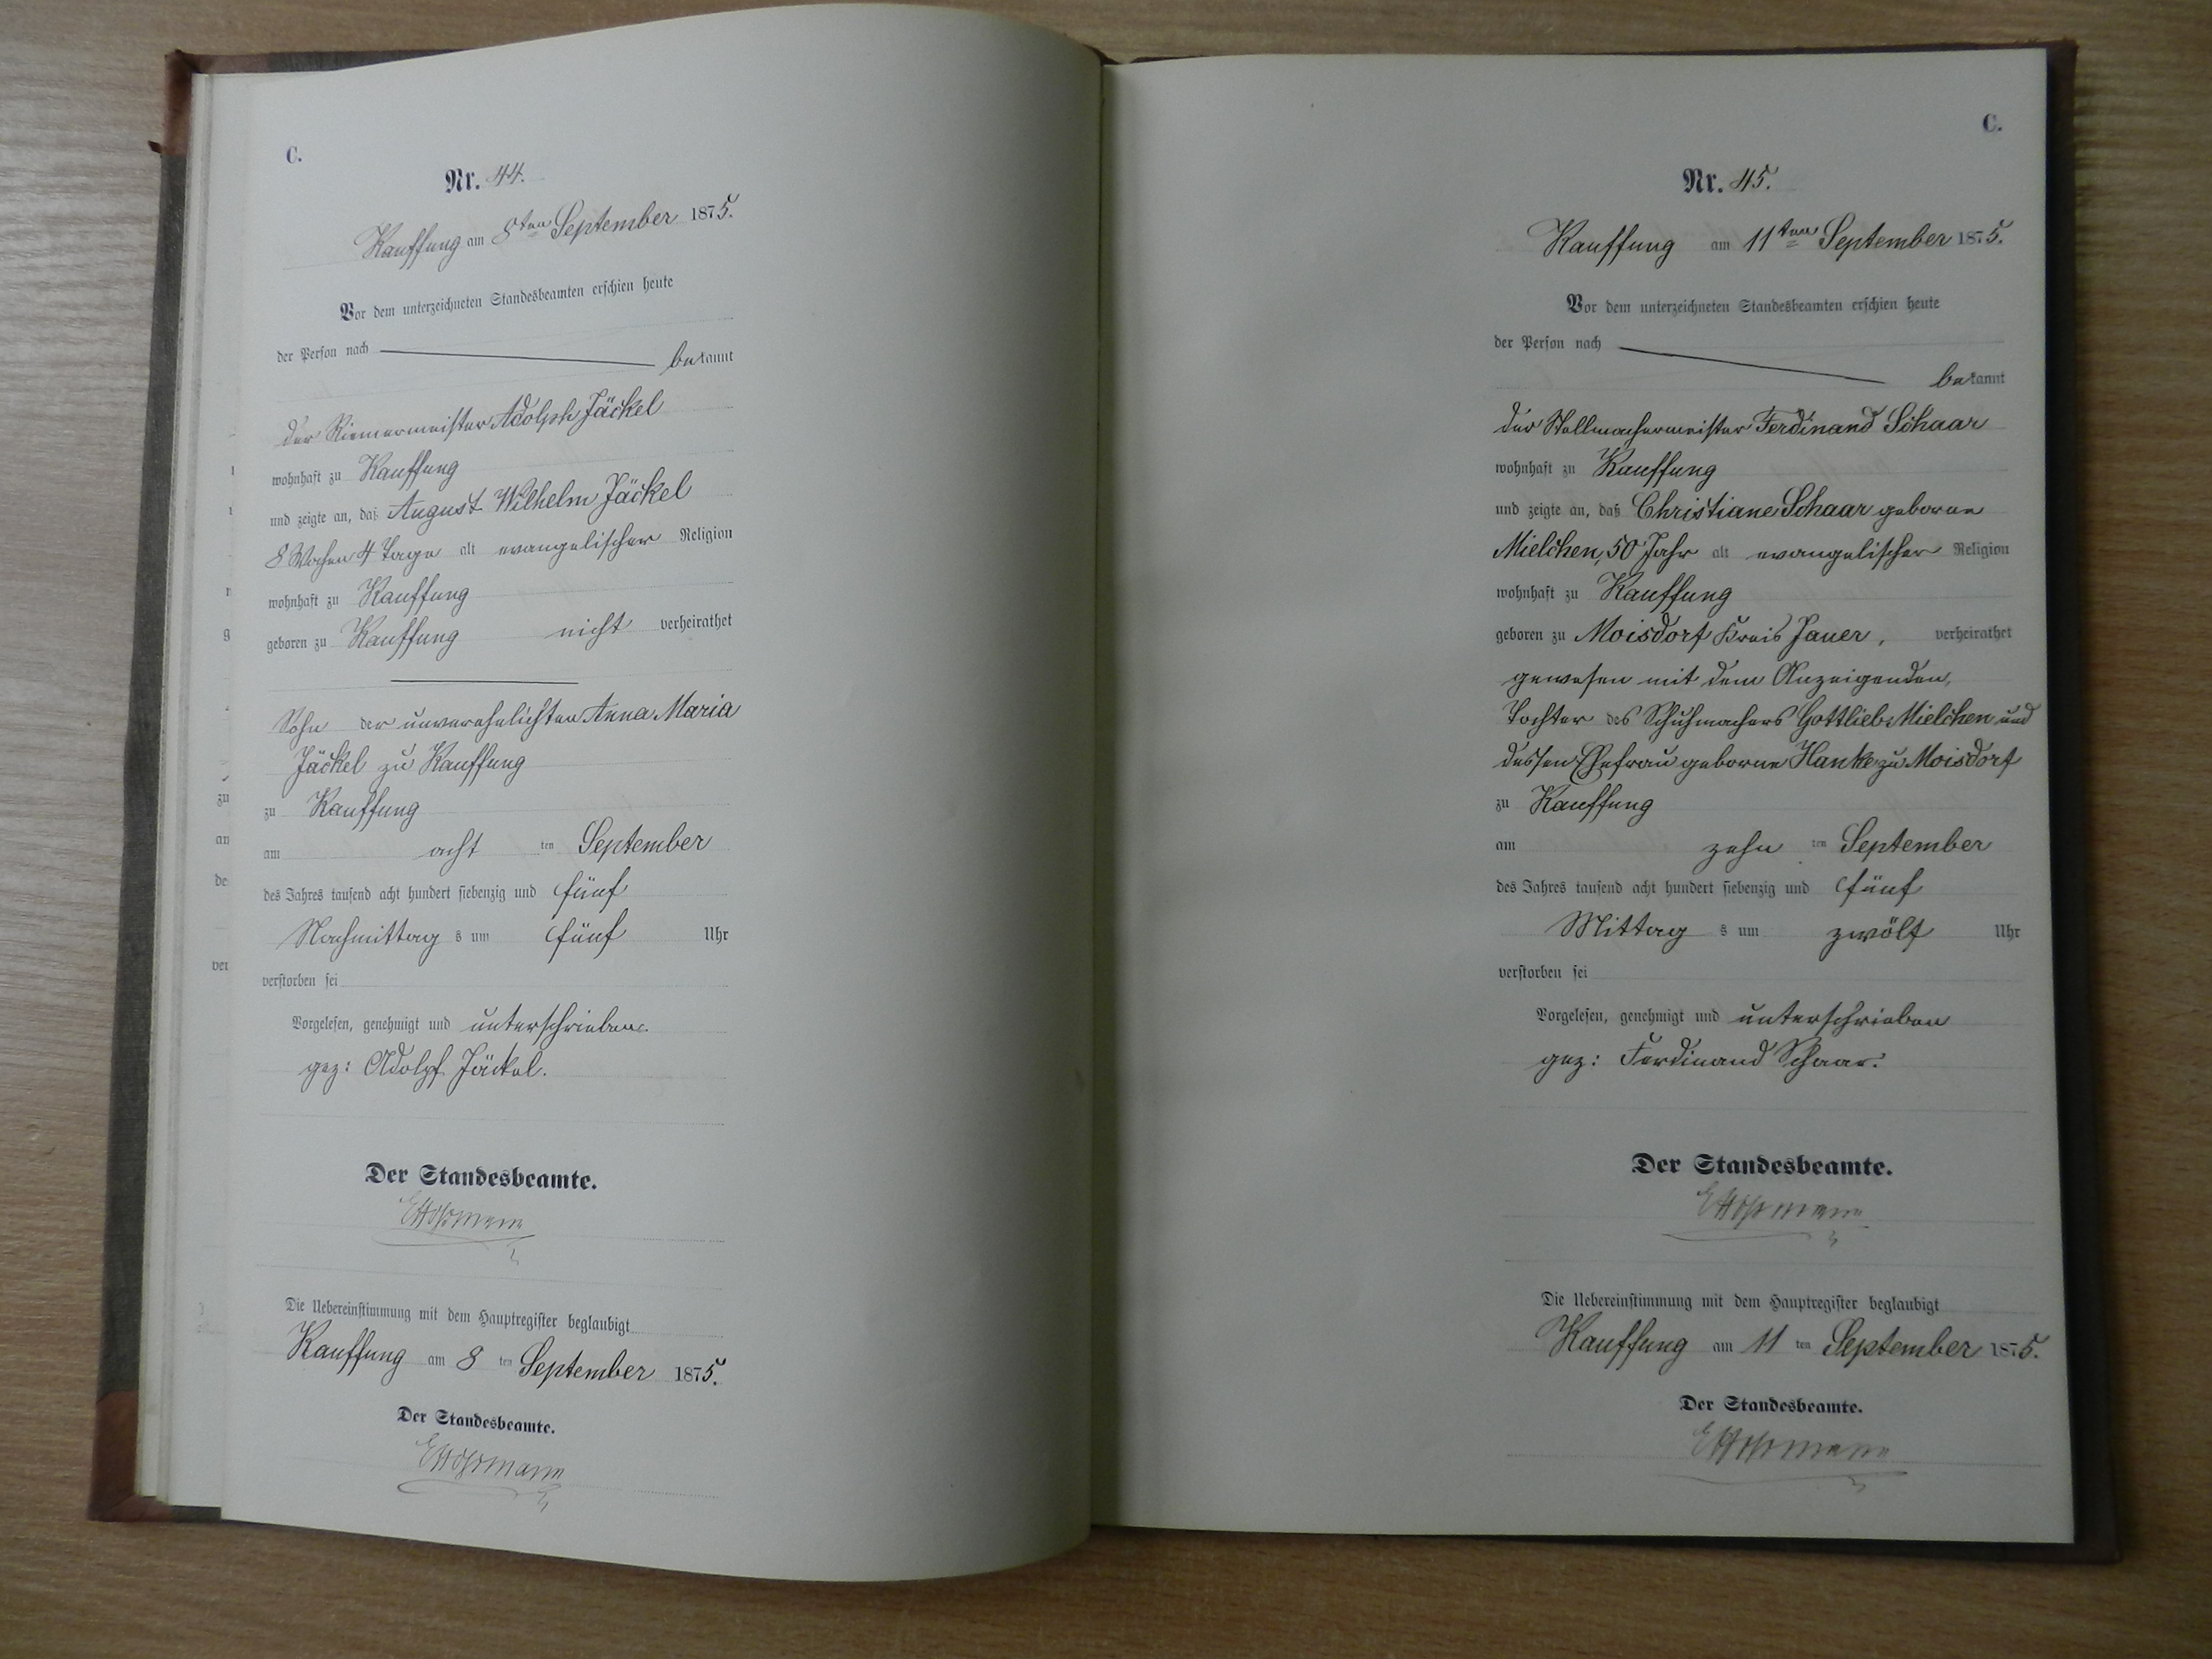 C.
Nr. 44.
Kauffung am 8ten September 1875.
Vor dem unterzeichneten Standesbeamten erschien heute
der Person nach
bekannt
der Riemermeister Adolph Jäckel
wohnhaft zu Kauffung
und zeigte an, daß August Wilhelm Jäckel
8 Wochen 4 Tage alt evangelischer Religion
wohnhaft zu Kauffung
geboren zu Kauffung nicht verheirathet
Sohn der unverehelichten Anna Maria
Jäckel zu Kauffung
zu Kauffung
am acht ten September
des Jahres tausend acht hundert siebenzig und fünf
Nachmittag s um fünf Uhr
verstorben sei
Vorgelesen, genehmigt und unterschrieben.
gez: Adolph Jäckel.
Der Standesbeamte.
Die Uebereinstimmung mit dem Hauptregister beglaubigt
Kauffung am 8 ten September 1875.
Der Standesbeamte.
C.
Nr. 45.
Kauffung am 11ten September 1875.
Vor dem unterzeichneten Standesbeamten erschien heute
der Person nach
bekannt
der Stellmachermeister Ferdinand Schaar
wohnhaft zu Kauffung
und zeigte an, daß Christiane Schaar geborne
Mielchen, 50 Jahr alt evangelischer Religion
wohnhaft zu Kauffung
geboren zu Moisdorf Kreis Jauer, verheirathet
gewesen mit dem Anzeigenden,
Tochter des Schuhmachers Gottlieb Mielchen und
dessen Ehefrau geborne Hanke zu Moisdorf
zu Kauffung
am zehn ten September
des Jahres tausend acht hundert siebenzig und fünf
Mittag s um zwölf Uhr
verstorben sei
Vorgelesen, genehmigt und unterschrieben
gez: Ferdinand Schaar.
Der Standesbeamte.
Die Uebereinstimmung mit dem Hauptregister beglaubigt
Kauffung am 11 ten September 1875.
Der Standesbeamte.